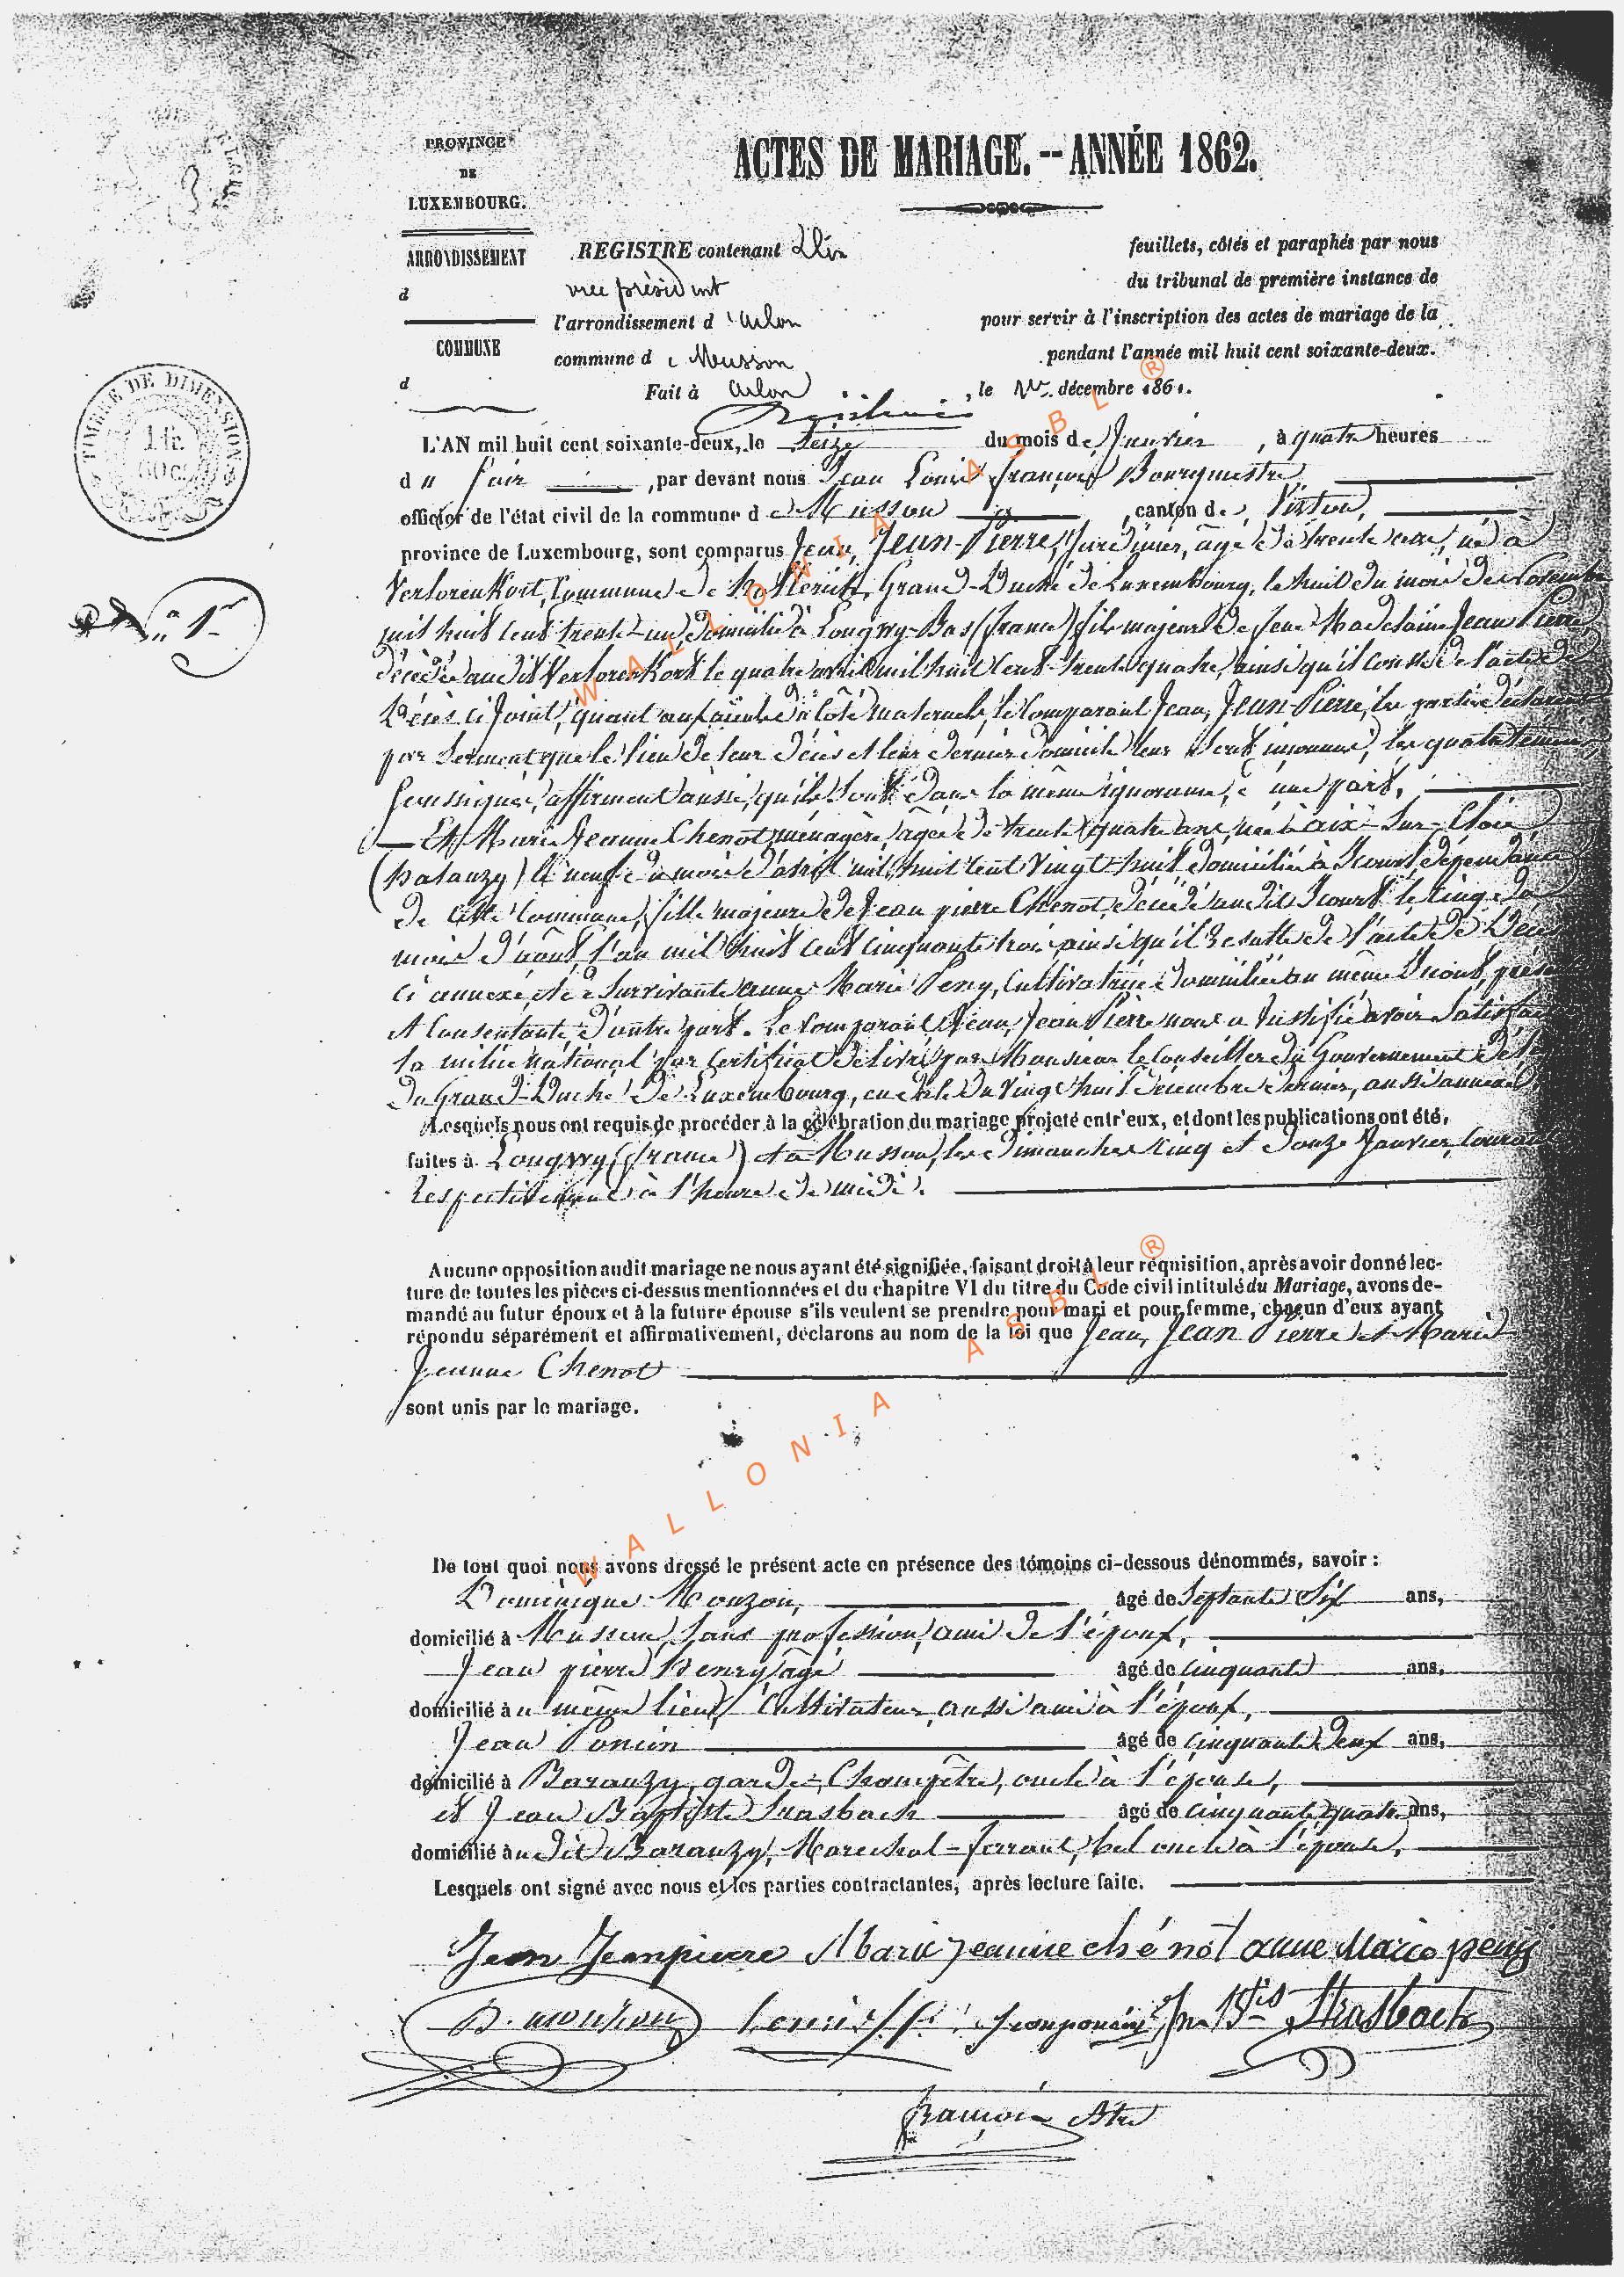 PROVINCE
DE
LUXEMBOURG.
ACTES DE MARIAGE. -- ANNÉE 1862.
ARRONDISSEMENT
d
COMMUNE
d
REGISTRE contenant Dix feuillets, côtés et paraphés par nous
vice président du tribunal de première instance de
l'arrondissement d'Arlon pour servir à l'inscription des actes de mariage de la
commune de Musson pendant l'année mil huit cent soixante-deux.
Fait à Arlon, le décembre 1861.
TIMBRE DE DIMENSION
1 fr.
60 c.
n° 1er
L'AN mil huit cent soixante-deux, le Seize du mois de Janvier, à quatre heures
du soir, par devant nous Jean Louis François Bourgmestre
officier de l'état civil de la commune de Musson, canton de Virton,
province de Luxembourg, sont comparus Jean, Jean-Pierre, âgé de trente ans, né à
Verlorenkost, Commune de Hollerich, Grand-Duché de Luxembourg, le huit du mois de Novembre
mil huit cent trente-un, domicilié à Longwy-Bas (france) fils majeur de feue Madelaine Jean Pierre
décédée audit Verlorenkost le quatre avril mil huit cent-trente quatre, ainsi qu'il conste de l'acte de
Décès ci joint, quant aux du Côté maternel, le Comparant Jean, Jean-Pierre,
par Serment que le lieu de leur décès et leur dernier domicile leur sont inconnus, les quatre témoins
Soussignés, affirment aussi, qu'ils sont dans la même ignorance, d'une part.
Et Marie Jeanne Chenot, ménagère, âgée de trente quatre ans, née à aix-Sur-Cloie
(halanzy) le neuf du mois d'avril mil huit cent vingt-huit, domiciliée à Icourt, dépendance
de cette Commune, fille majeure de Jean pierre Chenot, décédé audit Icourt le cinq du
mois d'août l'an mil huit cent cinquante trois, ainsi qu'il résulte de l'acte de Décès
ci annexé, et de Survivante anne Marie Peny, Cultivatrice domiciliée au même Icourt,
et Consentante d'autre part. Le Comparant Jean, Jean Pierre nous a Justifié avoir Satisfait
la milice national par Certificat délivré par Monsieur le Conseiller du Gouvernement
du Grand-Duché de Luxembourg, en date du vingt huit Décembre dernier, aussi annexé
Lesquels nous ont requis de procéder à la célébration du mariage projeté entr'eux, et dont les publications ont été,
faites à Longwy, (france) et à Musson, les dimanches cinq et douze Janvier, courant
respectivement à l'heure de midi.
Aucune opposition audit mariage ne nous ayant été signifiée, faisant droit à leur réquisition, après avoir donné lec-
ture de toutes les pièces ci-dessus mentionnées et du chapitre VI du titre du Code civil intitulé du Mariage, avons de-
mandé au futur époux et à la future épouse s'ils veulent se prendre pour mari et pour femme, chacun d'eux ayant
répondu séparément et affirmativement, déclarons au nom de la loi que Jean, Jean Pierre et Marie
Jeanne Chenot
sont unis par le mariage.
De tout quoi nous avons dressé le présent acte en présence des témoins ci-dessous dénommés, savoir :
Dominique Mouzon, âgé de Septante Six ans,
domicilié à Musson, Sans profession, ami de l'époux,
Jean pierre Henry, âgé âgé de cinquante ans,
domicilié au même lieu, Cultivateur, aussi ami à l'époux,
Jean Poncin âgé de cinquante Deux ans,
domicilié à Baranzy, garde-Champêtre, oncle à l'épouse,
et Jean Baptiste Strasbach âgé de cinquante quatre ans,
domicilié audit Baranzy, Marechal-ferrant, bel oncle à l'épouse,
Lesquels ont signé avec nous et les parties contractantes, après lecture faite.
Jean Jeanpierre Marie jeanne chénot anne Marie peny
D. mouzon jean poncin Jn Btis Strasbach
François Btre
WALLONIA ASBL ®
WALLONIA ASBL ®